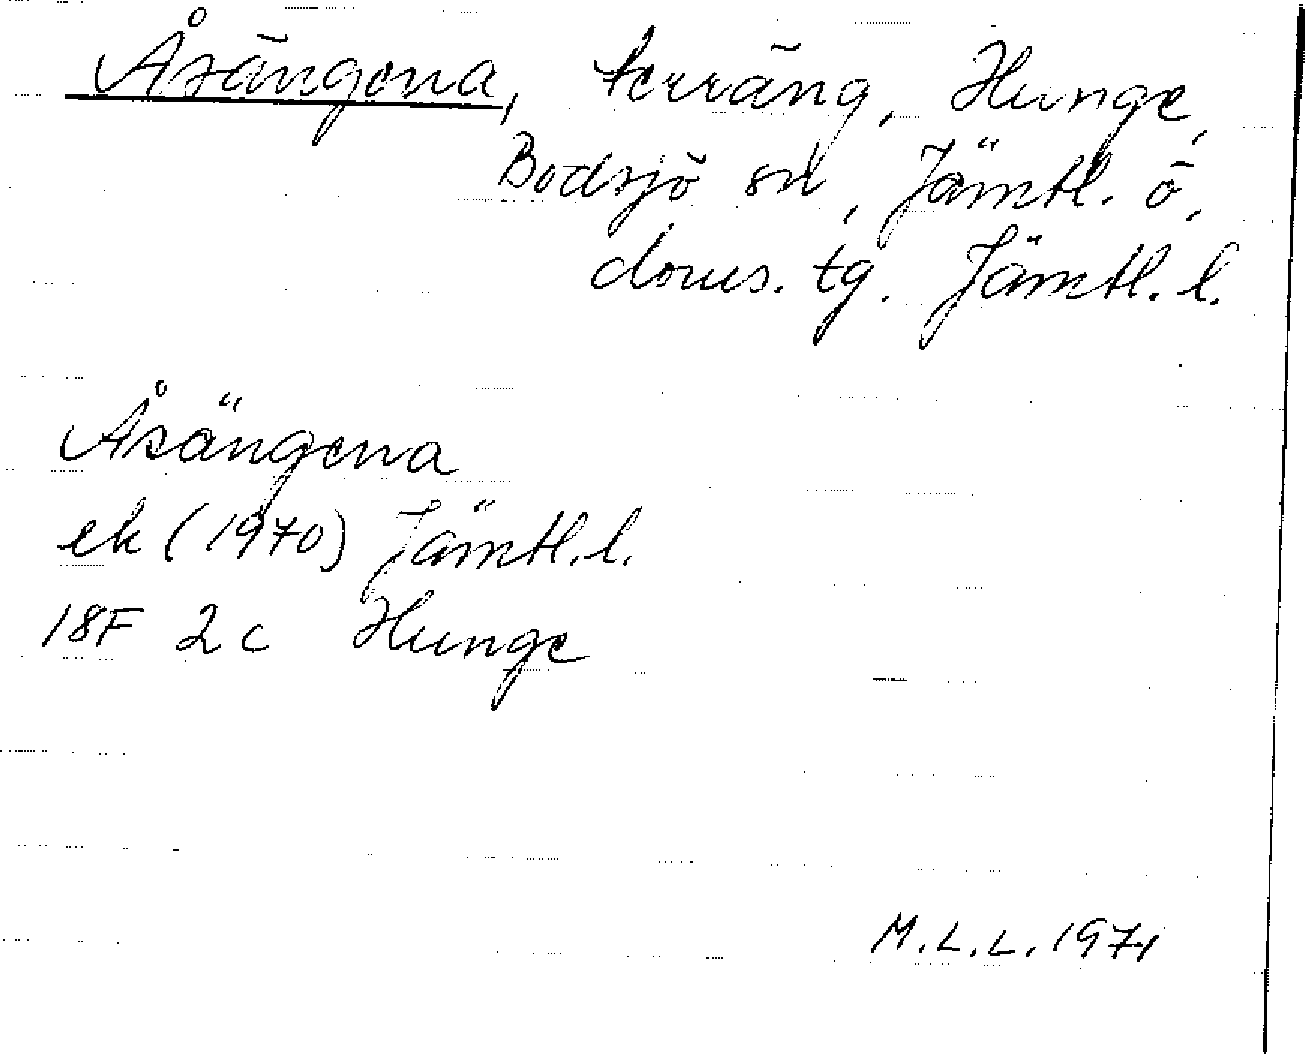 Åsängena, terräng, Hunge,
Bodsjö sn, Jämtl. ö,
doms. tg. Jämtl. l.
Åsängena
ek (1970) Jämtl. l.
18F 2c Hunge
M.L.L. 1974